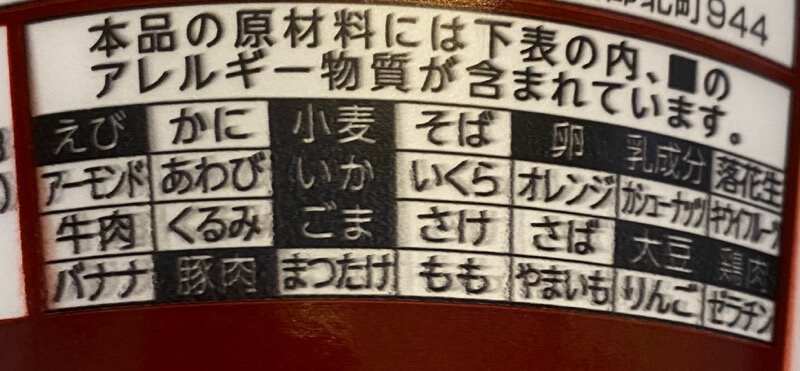 町944
本品の原材料には下表の内、■の
アレルギー物質が含まれています。
えび かに 小麦 そば 卵 乳成分 落花生
アーモンド あわび いか いくら オレンジ カシューナッツ キウイフルーツ
牛肉 くるみ ごま さけ さば 大豆 鶏肉
バナナ 豚肉 まつたけ もも やまいも りんご ゼラチン